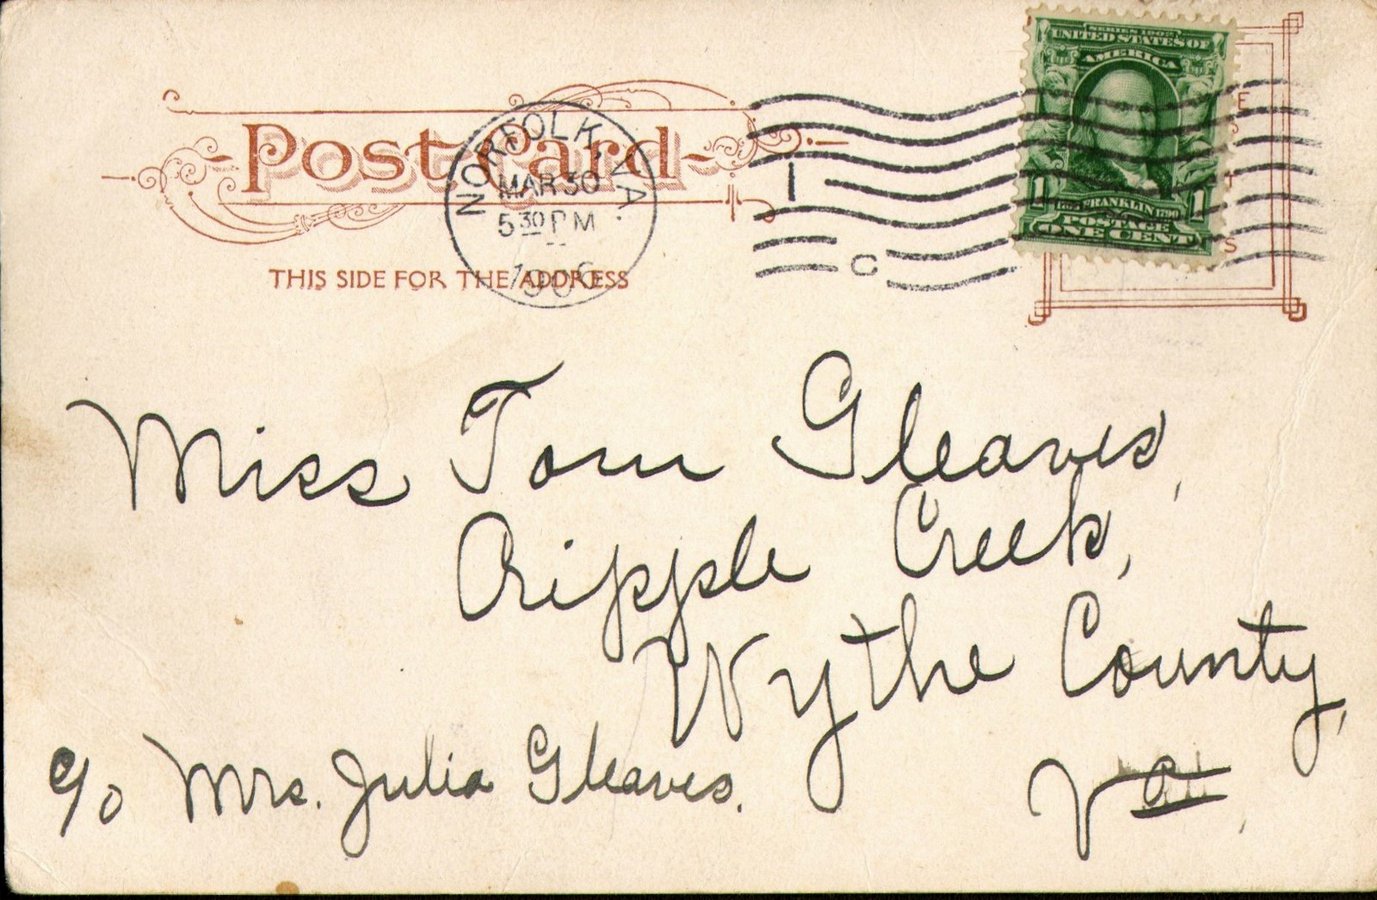 Post Card
THIS SIDE FOR THE ADDRESS
NORFOLK, VA.
MAR 30
5 30 PM
1906
1
C
SERIES 1902
UNITED STATES OF
AMERICA
1 1
FRANKLIN 1790
POSTAGE
ONE CENT
Miss Tom Gleaves,
Cripple Creek,
Wythe County,
Va.
c/o Mrs. Julia Gleaves.